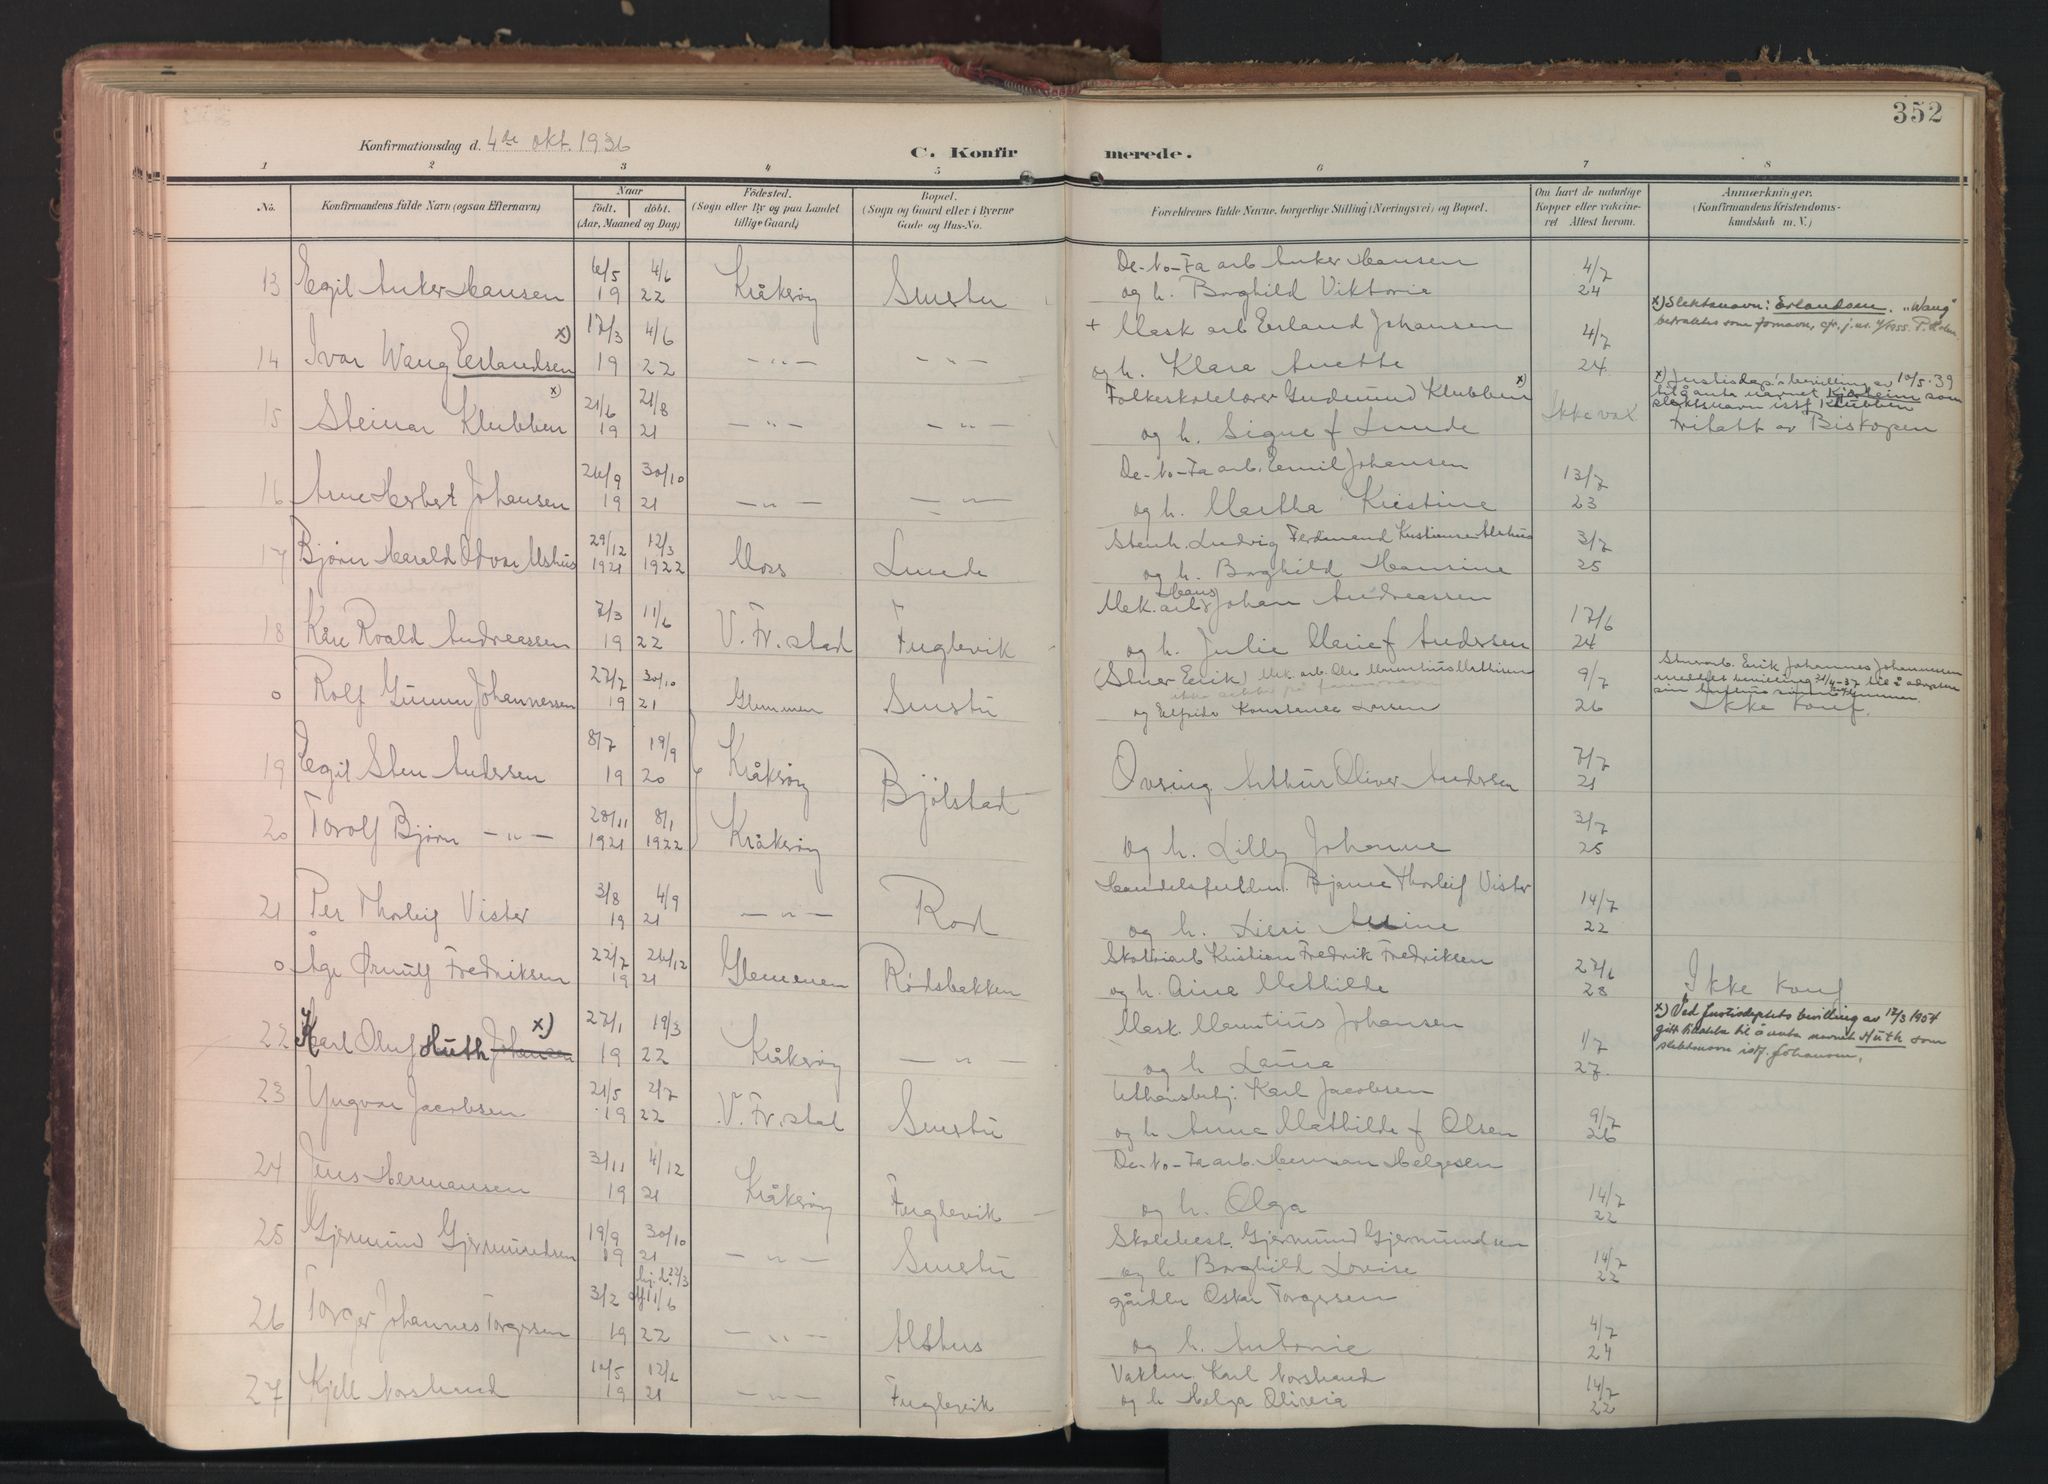 352
Konfirmationsdag d. 4de okt. 1936
C. Konfirmerede.
1 2 3 4 5 6 7 8
No. Konfirmandens fulde Navn (ogsaa Efternavn) Naar født. døbt. (Aar, Maaned og Dag) Fødested. (Sogn eller By og paa Landet tillige Gaard) Bopæl. (Sogn og Gaard eller i Byerne Gade og Hus-No. Forældrenes fulde Navne, borgerlige Stilling (Næringsvei) og Bopæl. Om havt de naturlige Kopper eller vakcineret Attest herom. Anmærkninger. (Konfirmandens Kristendomskundskab m. V.)
13 Egil Anker Hansen 6/5 19 4/6 22 Kråkerøy Smertu De-No-Fa arb Anker Hansen
og h. Borghild Viktoria 4/7 24
14 Ivar Wang Erlandsen x) 17/3 19 4/6 22 -„- + Mask arb Erland Johansen
og h. Klara Anette 4/7 24
x) Slektsnavn: Erlandsen. „Wang"
betraktes som fornavn, cfr. j.nr. 4/1955. P. Holm
15 Steinar Klubben x) 21/6 19 21/8 21 -„- -„- Folkeskolelærer Gudmund Klubben x)
og h. Signe f Lunde Ikke vak
x) Justisdep's bevilling av 10/5-39
til å anta navnet Kjærheim som
slektsnavn istf Klubben
tritatt av Biskopen
16 Arne Herbert Johansen 26/9 19 30/10 21 -„- -„- De-No-Fa arb. Emil Johansen
og h. Martha Kristine 13/7 23
17 Bjørn Harald Odvar Alshus 29/12 1921 12/3 1922 Moss Lunde Stenh. Ludvig Ferdinand Kristiansen Alshus
og h. Borghild Hansine 3/7 25
18 Kåre Roald Andreassen 7/3 19 11/6 22 V. Fr. stad Fuglevik Mek. arb Hans Johan Andreassen
og h. Julie Marie f Andersen 17/6 24
0 Rolf Gunnar Johannessen 27/7 19 30/10 21 Glemmen Smertu
og Elfrida Konstanse Larsen 9/7 26
Ikke konf.
19 Egil Sten Andersen 8/7 19 19/9 20 Kråkerøy Bjølstad Ovsing Arthur Oliver Andersen 7/7 21
20 Torolf Bjørn -„- 28/11 1921 8/1 1922 Kråkerøy
og h. Lilly Johanne 3/7 25
21 Per Thorleif Vister 3/8 19 4/9 21 -„- Rød Handelsfuldm. Bjarne Thorleif Vister
og h. Lissi Alvine 14/7 22
0 Åge Ørnulf Fredriksen 22/7 19 26/12 21 Glemmen Rødsbakken Skotøiarb Kristian Fredrik Fredriksen
og h. Aina Mathilde 27/6 28 Ikke konf
22 Karl Oluf Huth Johansen x) 27/1 19 19/3 22 Kråkerøy -„- Mask Mauritius Johansen
og h Laura 1/7 27.
x) Ved Justisdeptets bevilling av 12/3 1957
gitt tillatelse til å anta navnet Huth som
slektsnavn istf. Johansen.
23 Yngvar Jacobsen 21/5 19 2/7 22 V. Fr. stad Smertu Uthansbetj. Karl Jacobsen
og h Anna Mathilde f Olsen 9/7 26
24 Jens Hermansen 3/11 19 4/12 21 Kråkerøy Fuglevik De-No-Fa arb. Herman Helgesen
og h. Olga 14/7 22
25 Gjermund Gjermundsen 19/9 19 30/10 21 -„- Smertu Skolebest. Gjermund Gjermundsen
og h Borghild Lovise 14/7 22
26 Torger Johannes Torgersen 3/2 19 hj.d. 22/3 11/6 22 -„- Alshus gårdbr Oskar Torgersen
og h. Antonie 4/7 24
27 Kjell Norstrand 10/5 19 12/6 21 -„- Fuglevik Vaktm. Karl Norstrand
og h Helga Olivia 14/7 22